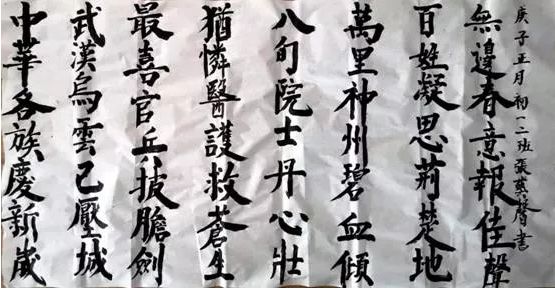 中華各族慶新歲
武漢烏雲已壓城
最喜官兵披膽劍
猶憐醫護救蒼生
八旬院士丹心壯
萬里神州碧血傾
百姓凝思荊楚地
無邊春意報佳聲
庚子正月初一二班張書